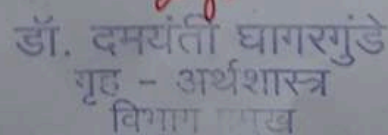 डॉ. दमयंती घागरगुंडे
गृह - अर्थशास्त्र
विभाग प्रमुख